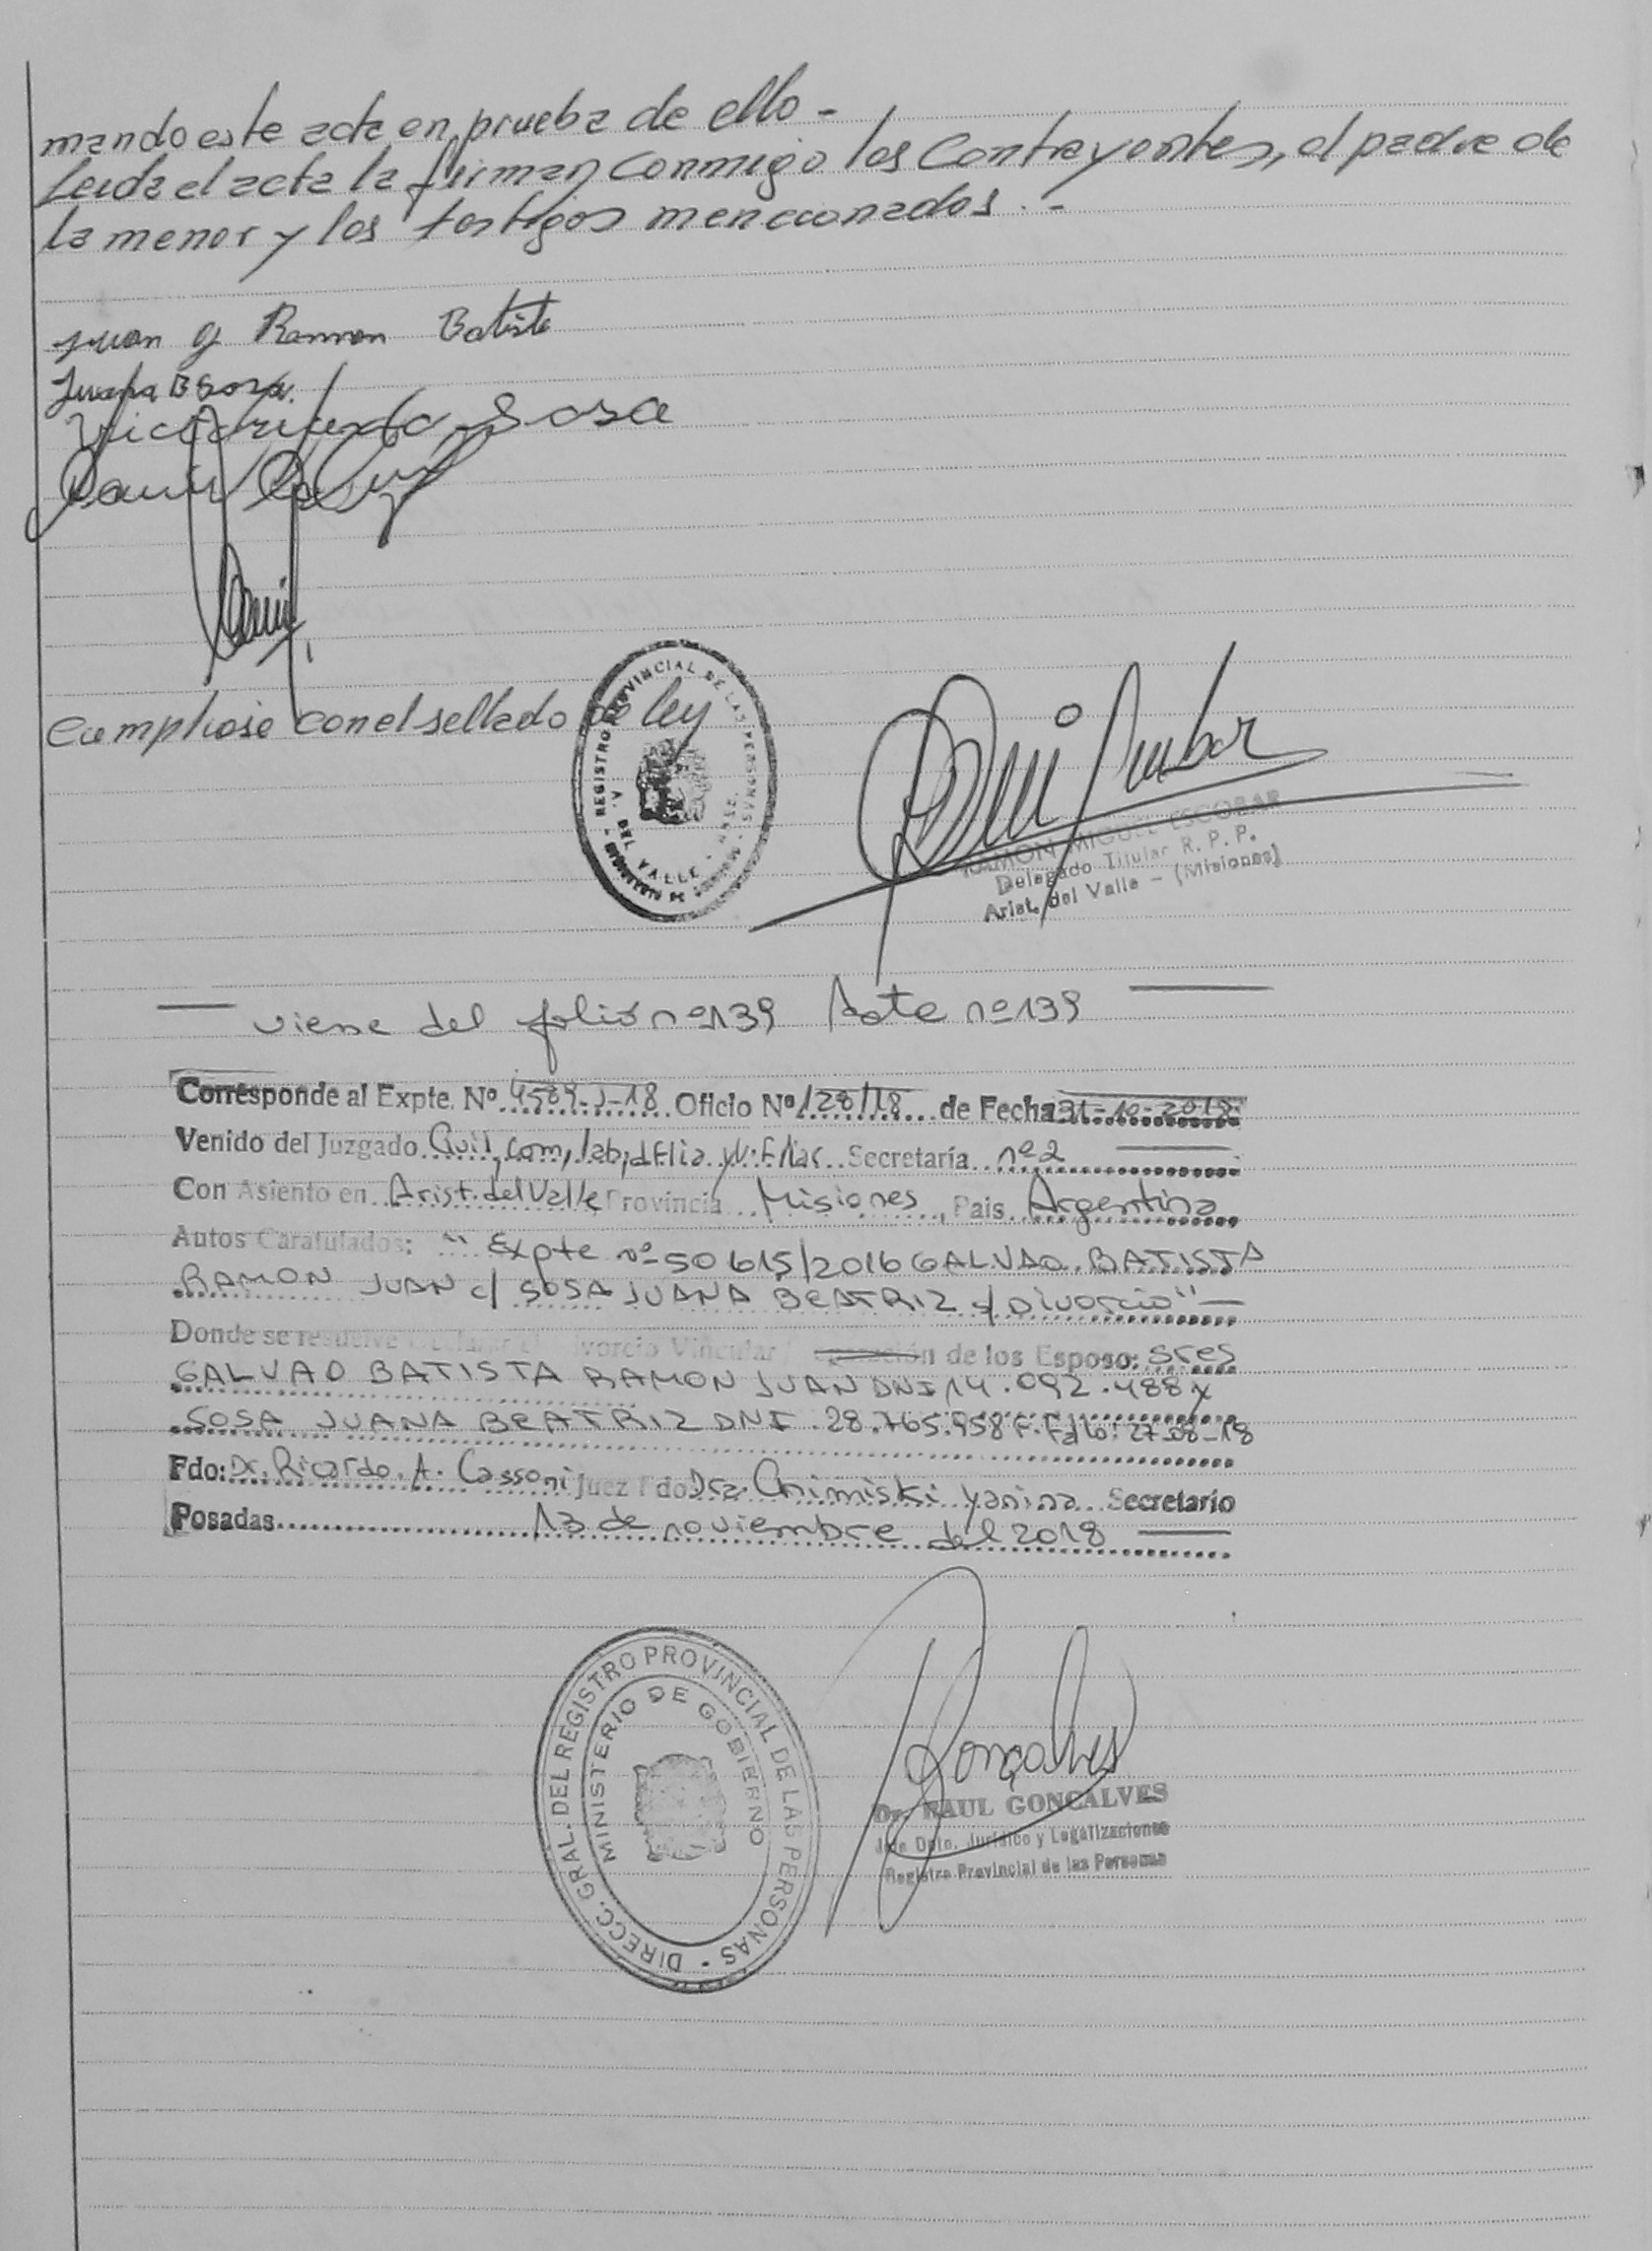 mando este acta en prueba de ello -
Leida el acta la firman conmigo los contrayentes, el padre de
la menor y los testigos mencionados. -
Juan G Ramon Batista
Juana B Sosa.
Sosa
Cumpliose con el sellado de ley
REGISTRO PROVINCIAL DE LAS PERSONAS
DEL VALLE
RAMON MIGUEL ESCOBAR
Delegado Titular R. P. P.
Arist. del Valle - (Misiones)
viene del folio nº139 Acta nº139
Corresponde al Expte. Nº 4589-J-18 Oficio Nº 128/18 de Fecha 31-10-2018
Venido del Juzgado Civil, com, lab, dFlia y V. Fliar Secretaría nº2
Con Asiento en Arist. del Valle Provincia Misiones, Pais Argentina
Autos Caratulados: "Expte nº 50615/2016 GALVAO BATISTA
RAMON JUAN c/ SOSA JUANA BEATRIZ s/ Divorcio" —
Donde se resuelve declarar el Divorcio Vincular / de los Esposo: Sres
GALVAO BATISTA RAMON JUAN DNI 14.092.488 y
SOSA JUANA BEATRIZ DNI 28.765.958 F. Fallo: 27-08-18
Fdo: Dr. Ricardo. A. Cassoni Juez Fdo Dra. Chimiski Yanina Secretario
Posadas 13 de noviembre del 2018
DIRECC. GRAL. DEL REGISTRO PROVINCIAL DE LAS PERSONAS
MINISTERIO DE GOBIERNO
Goncalves
Dr. RAUL GONCALVES
Jefe Dpto. Jurídico y Legalizaciones
Registro Provincial de las Personas